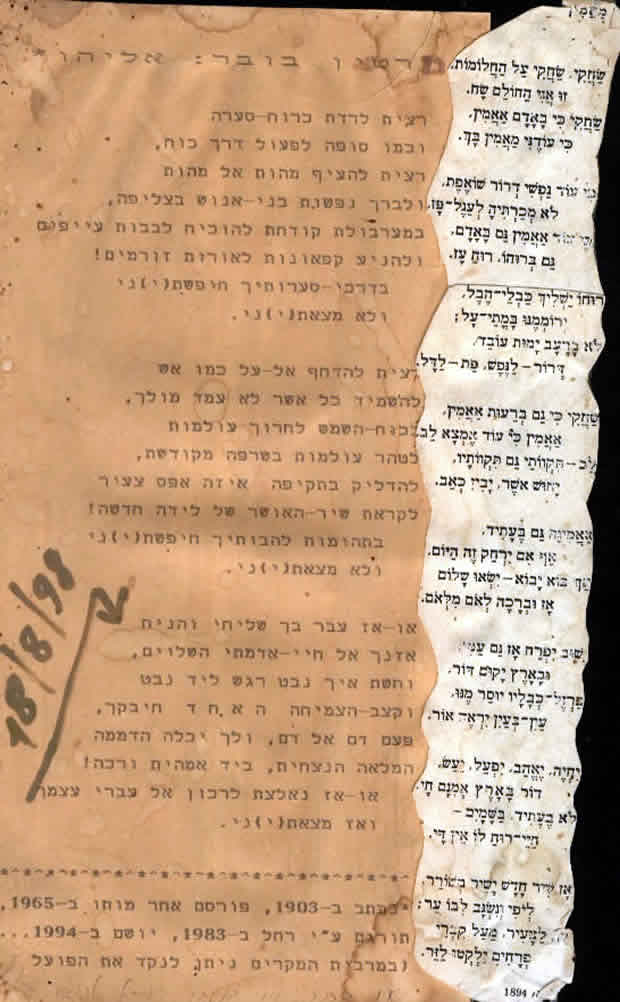 שַׂחֲקִי, שַׂחֲקִי עַל הַחֲלוֹמוֹת,
זוּ אֲנִי הַחוֹלֵם שָׂח.
שַׂחֲקִי כִּי בָאָדָם אַאֲמִין,
כִּי עוֹדֶנִּי מַאֲמִין בָּךְ.
עוֹד נַפְשִׁי דְּרוֹר שׁוֹאֶפֶת,
לֹא מְכַרְתִּיהָ לְעֵגֶל־פָּז,
עוֹד אַאֲמִין גַּם בָּאָדָם,
גַּם בְּרוּחוֹ, רוּחַ עָז.
רוּחוֹ יַשְׁלִיךְ כַּבְלֵי־הֶבֶל,
יְרוֹמְמֶנּוּ בָּמֳתֵי־עָל;
לֹא בָּרָעָב יָמוּת עוֹבֵד,
דְּרוֹר – לַנֶּפֶשׁ, פַּת – לַדָּל.
שַׂחֲקִי כִּי גַם בְּרֵעוּת אַאֲמִין,
אַאֲמִין כִּי עוֹד אֶמְצָא לֵב,
לֵב – תִּקְווֹתַי גַּם תִּקְווֹתָיו,
יָחוּשׁ אֹשֶׁר, יָבִין כְּאֵב.
אַאֲמִינָה גַּם בֶּעָתִיד,
אַף אִם יִרְחַק זֶה הַיּוֹם,
אַךְ בּוֹא יָבוֹא – יִשְׂאוּ שָׁלוֹם
אָז וּבְרָכָה לְאֹם מִלְּאֹם.
יָשׁוּב יִפְרַח אָז גַּם עַמִּי,
וּבָאָרֶץ יָקוּם דּוֹר,
בַּרְזֶל־כְּבָלָיו יוּסַר מֶנּוּ,
עַיִן־בְּעַיִן יִרְאֶה אוֹר.
יִחְיֶה, יֶאֱהַב, יִפְעַל, יָעַשׂ,
דּוֹר בָּאָרֶץ אָמְנָם חָי,
לֹא בֶּעָתִיד, בַּשָּׁמַיִם –
חַיֵּי־רוּחַ לוֹ אֵין דָּי.
אָז שִׁיר חָדָשׁ יָשִׁיר מְשׁוֹרֵר,
לְיֹפִי וְנִשְׂגָּב לִבּוֹ עֵר;
לַצָּעִיר, מֵעַל קִבְרִי
פְּרָחִים יִלְקְטוּ לַזֵּר.
1894
מרטין בובר: אליהו
רצית לרדת כרוח-סערה
וכמו סופה לפעול דרך כוח,
רצית להציף מהות אל מהות
ולברך נפשות בני-אנוש בצליפה,
במערבולת קודחת להוכיח לבבות עייפים
ולהניע קפאונות לאורות זורמים!
בדרכי-סערותיך חיפשת(י)ני
ולא מצאת(י)ני.
רצית להדחף אל-על כמו אש
להשמיד כל אשר לא עמד מולך,
בכוח-השמש לחרוך עולמות
לטהר עולמות בשרפה מקודשת,
להדליק בתקיפה איזה אפס צעיר
לקראת שיר-האושר של לידה חדשה!
בתהומות להבותיך חיפשת(י)ני
ולא מצאת(י)ני.
או-אז עבר בך שליחי והניח
אזנך אל חיי-אדמתי השלוים,
וחשת איך נבט רגש ליד נבט
וקצב-הצמיחה ה א ח ד חיבקך,
פעם דם אל דם, ולך יכלה הדממה
המלאה הנצחית, ביד אמהית ורכה!
או-אז נאלצת לרכון אל עברי עצמך
ואז מצאת(י)ני.
18/8/98
*^*^*^*^*^*^*^*^*^*^*^*^*^*^*^*^*^*
נכתב ב-1903, פורסם אחר מותו ב-1965,
תורגם ע"י רחל ב-1983, יושם ב-1994...
(במרבית המקרים ניתן לנקד את הפועל